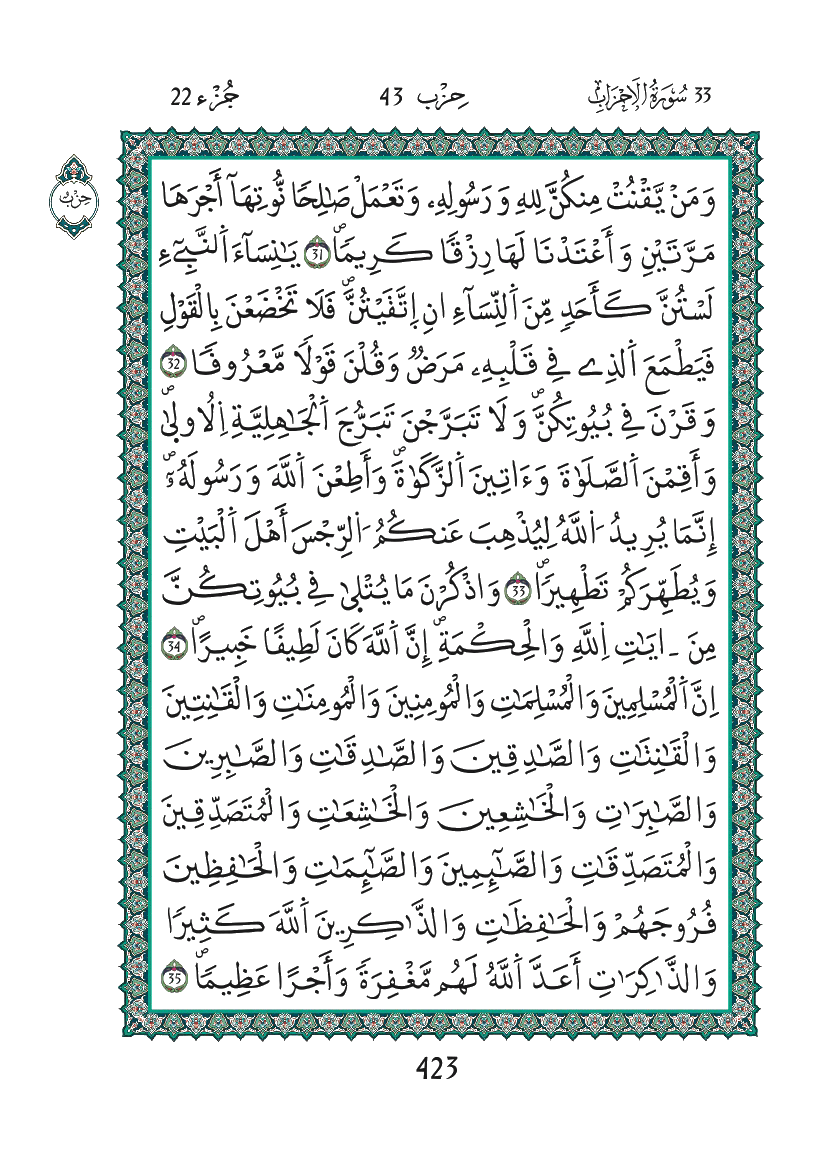 33 سُورَةُ الْأَحْزَابِ حِزْب 43 جُزْء 22
حِزْبُ
وَمَنْ يَّقْنُتْ مِنكُنَّ لِلهِ وَرَسُولِهِۦ وَتَعْمَلْ صَٰلِحًا نُّوتِهَآ أَجْرَهَا
مَرَّتَيْنِ وَأَعْتَدْنَا لَهَا رِزْقًا كَرِيمًاۖ 31 يَٰنِسَآءَ اَ۬لنَّبِيٓءِ
لَسْتُنَّ كَأَحَدٖ مِّنَ اَ۬لنِّسَآءِ انِ اِ۪تَّقَيْتُنَّۖ فَلَا تَخْضَعْنَ بِالْقَوْلِ
فَيَطْمَعَ اَ۬لذِے فِے قَلْبِهِۦ مَرَضٞ وَقُلْنَ قَوْلًا مَّعْرُوفًاۖ 32
وَقَرْنَ فِے بُيُوتِكُنَّۖ وَلَا تَبَرَّجْنَ تَبَرُّجَ اَ۬لْجَٰهِلِيَّةِ اِ۬لُاول۪يٰۖ
وَأَقِمْنَ اَ۬لصَّلَوٰةَ وَءَاتِينَ اَ۬لزَّكَوٰةَۖ وَأَطِعْنَ اَ۬للَّهَ وَرَسُولَهُۥٓۖ
إِنَّمَا يُرِيدُ اُ۬للَّهُ لِيُذْهِبَ عَنكُمُ اُ۬لرِّجْسَ أَهْلَ اَ۬لْبَيْتِ
وَيُطَهِّرَكُمْ تَطْهِيرٗاۖ 33 وَاذْكُرْنَ مَا يُتْل۪يٰ فِے بُيُوتِكُنَّ
مِنَ ـ اٰيَٰتِ اِ۬للَّهِ وَالْحِكْمَةِۖ إِنَّ اَ۬للَّهَ كَانَ لَطِيفًا خَبِيرًاۖ 34
اِنَّ اَ۬لْمُسْلِمِينَ وَالْمُسْلِمَٰتِ وَالْمُومِنِينَ وَالْمُومِنَٰتِ وَالْقَٰنِتِينَ
وَالْقَٰنِتَٰتِ وَالصَّٰدِقِينَ وَالصَّٰدِقَٰتِ وَالصَّٰبِرِينَ
وَالصَّٰبِرَٰتِ وَالْخَٰشِعِينَ وَالْخَٰشِعَٰتِ وَالْمُتَصَدِّقِينَ
وَالْمُتَصَدِّقَٰتِ وَالصَّٰٓئِمِينَ وَالصَّٰٓئِمَٰتِ وَالْحَٰفِظِينَ
فُرُوجَهُمْ وَالْحَٰفِظَٰتِ وَالذَّٰكِرِينَ اَ۬للَّهَ كَثِيرًا
وَالذَّٰكِرَٰتِ أَعَدَّ اَ۬للَّهُ لَهُم مَّغْفِرَةً وَأَجْرًا عَظِيمًاۖ 35
423